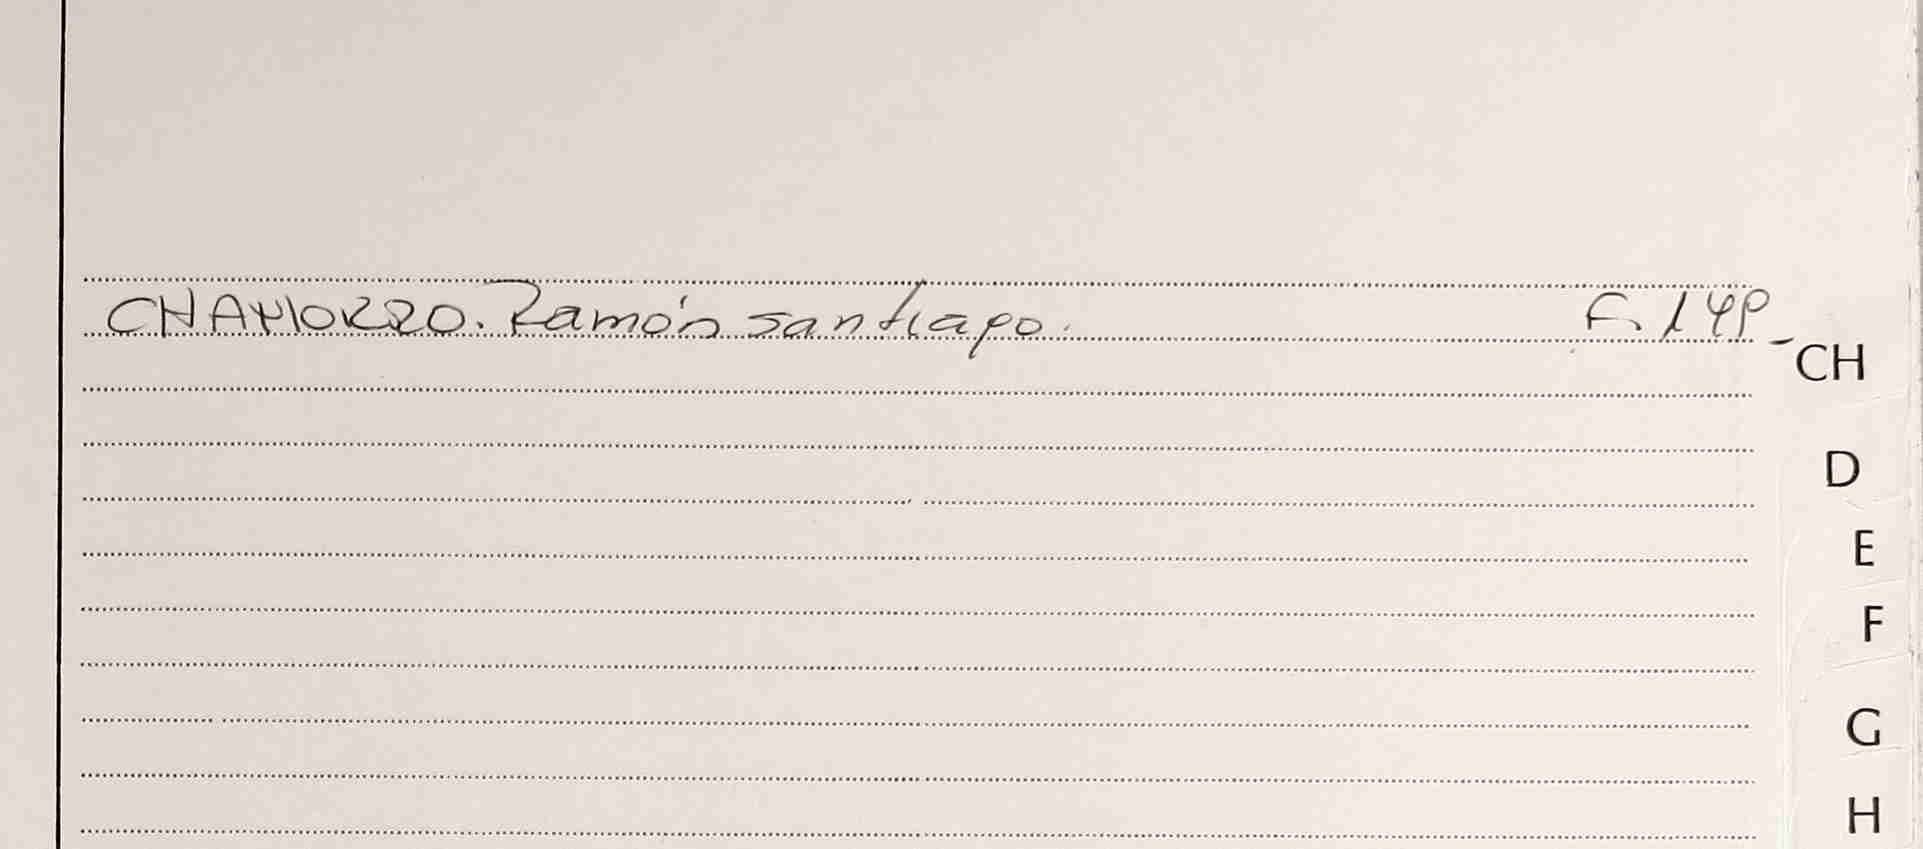 CHAMORRO. Ramón santiago. F. 149
CH
D
E
F
G
H